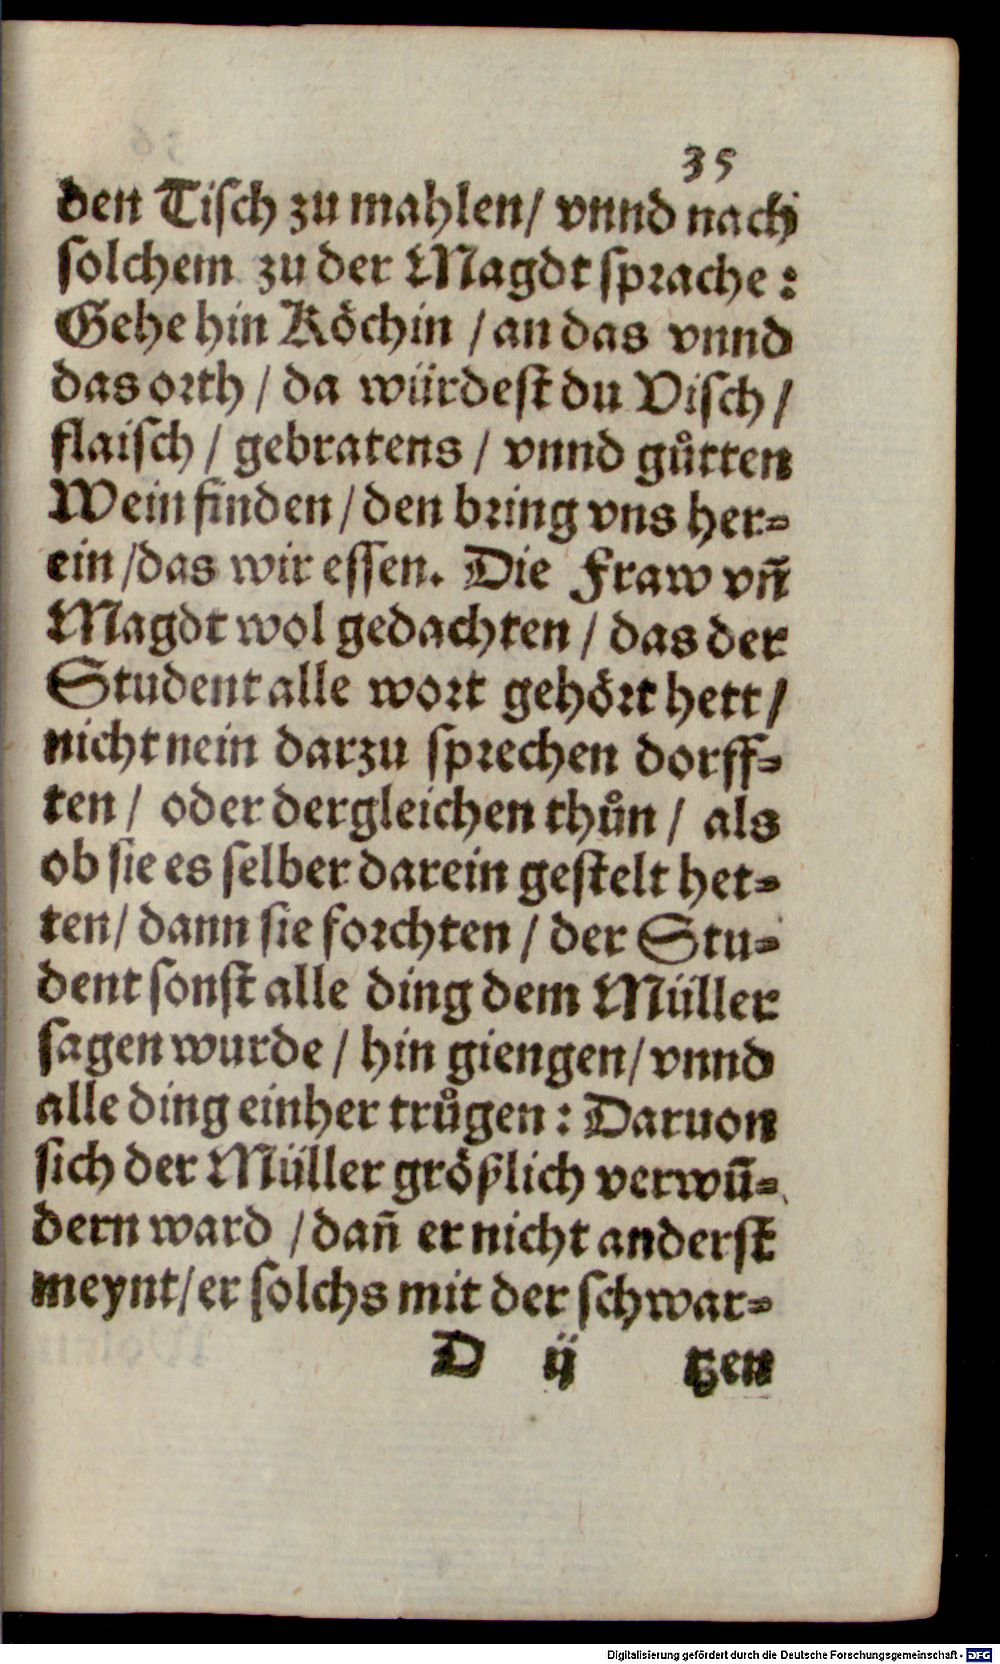 35
den Tisch zu mahlen/ vnnd nach
solchem zu der Magdt sprache:
Gehe hin Köchin / an das vnnd
das orth / da würdest du Visch /
flaisch / gebratens / vnnd gůtten
Wein finden / den bring vns her-
ein / das wir essen. Die Fraw vñ
Magdt wol gedachten / das der
Student alle wort gehört hett /
nicht nein darzu sprechen dorff-
ten / oder dergleichen thůn / als
ob sie es selber darein gestelt het-
ten / dann sie forchten / der Stu-
dent sonst alle ding dem Müller
sagen wurde / hin giengen / vnnd
alle ding einher trůgen: Daruon
sich der Müller größlich verwū-
dern ward / dañ er nicht anderst
meynt / er solchs mit der schwar-
D ij tzen
Digitalisierung gefördert durch die Deutsche Forschungsgemeinschaft - DFG